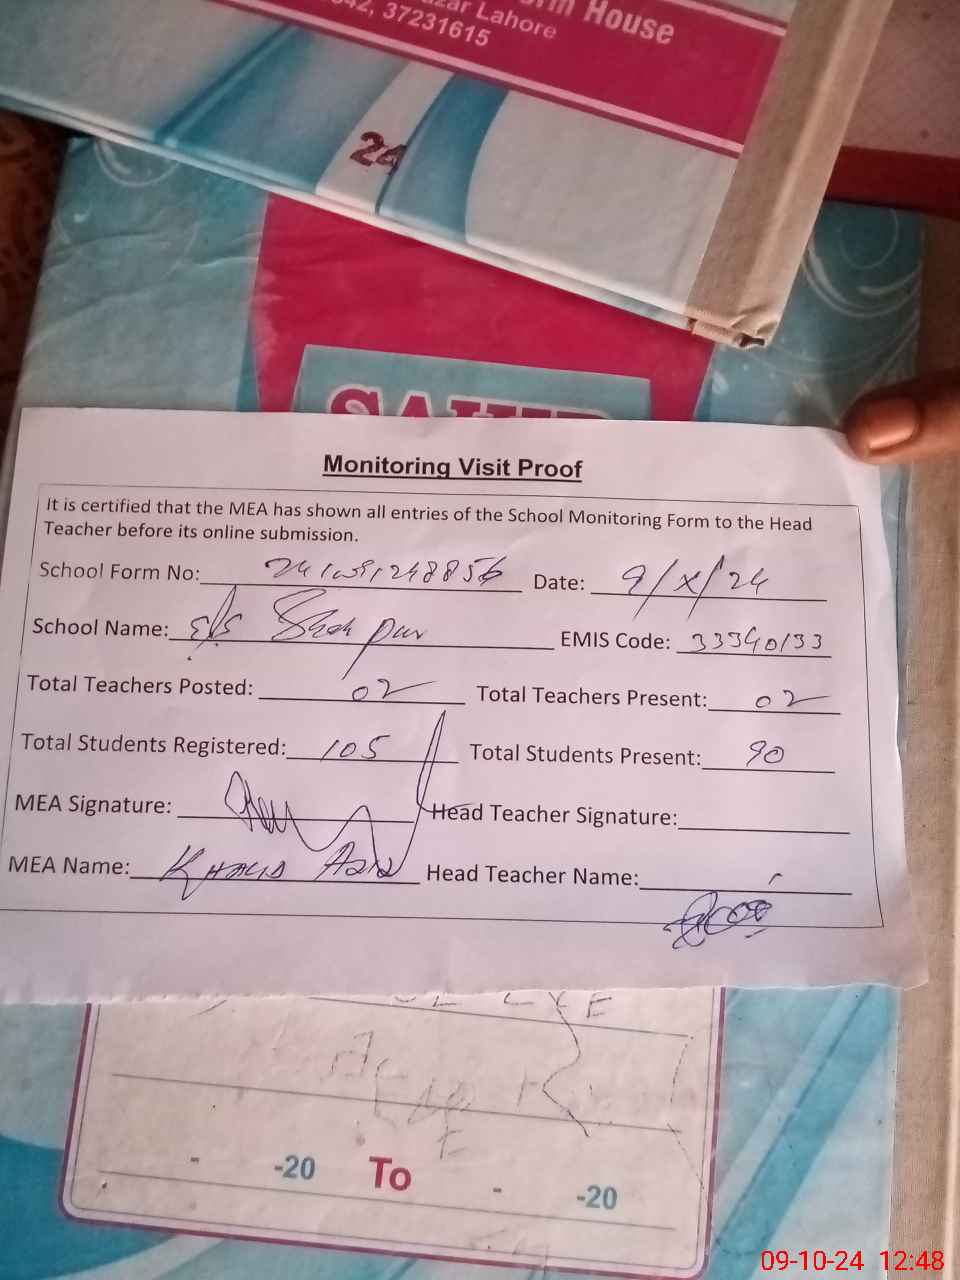 rm House
zar Lahore
042, 37231615
24
SAHIR
Monitoring Visit Proof
It is certified that the MEA has shown all entries of the School Monitoring Form to the Head
Teacher before its online submission.
School Form No: Date: 9/X/24
School Name: Shah pur EMIS Code: 33340133
Total Teachers Posted: 02 Total Teachers Present: 02
Total Students Registered: 105 Total Students Present: 90
MEA Signature: Head Teacher Signature:
MEA Name: Khalid Aziz Head Teacher Name:
- -20 To - -20
09-10-24 12:48